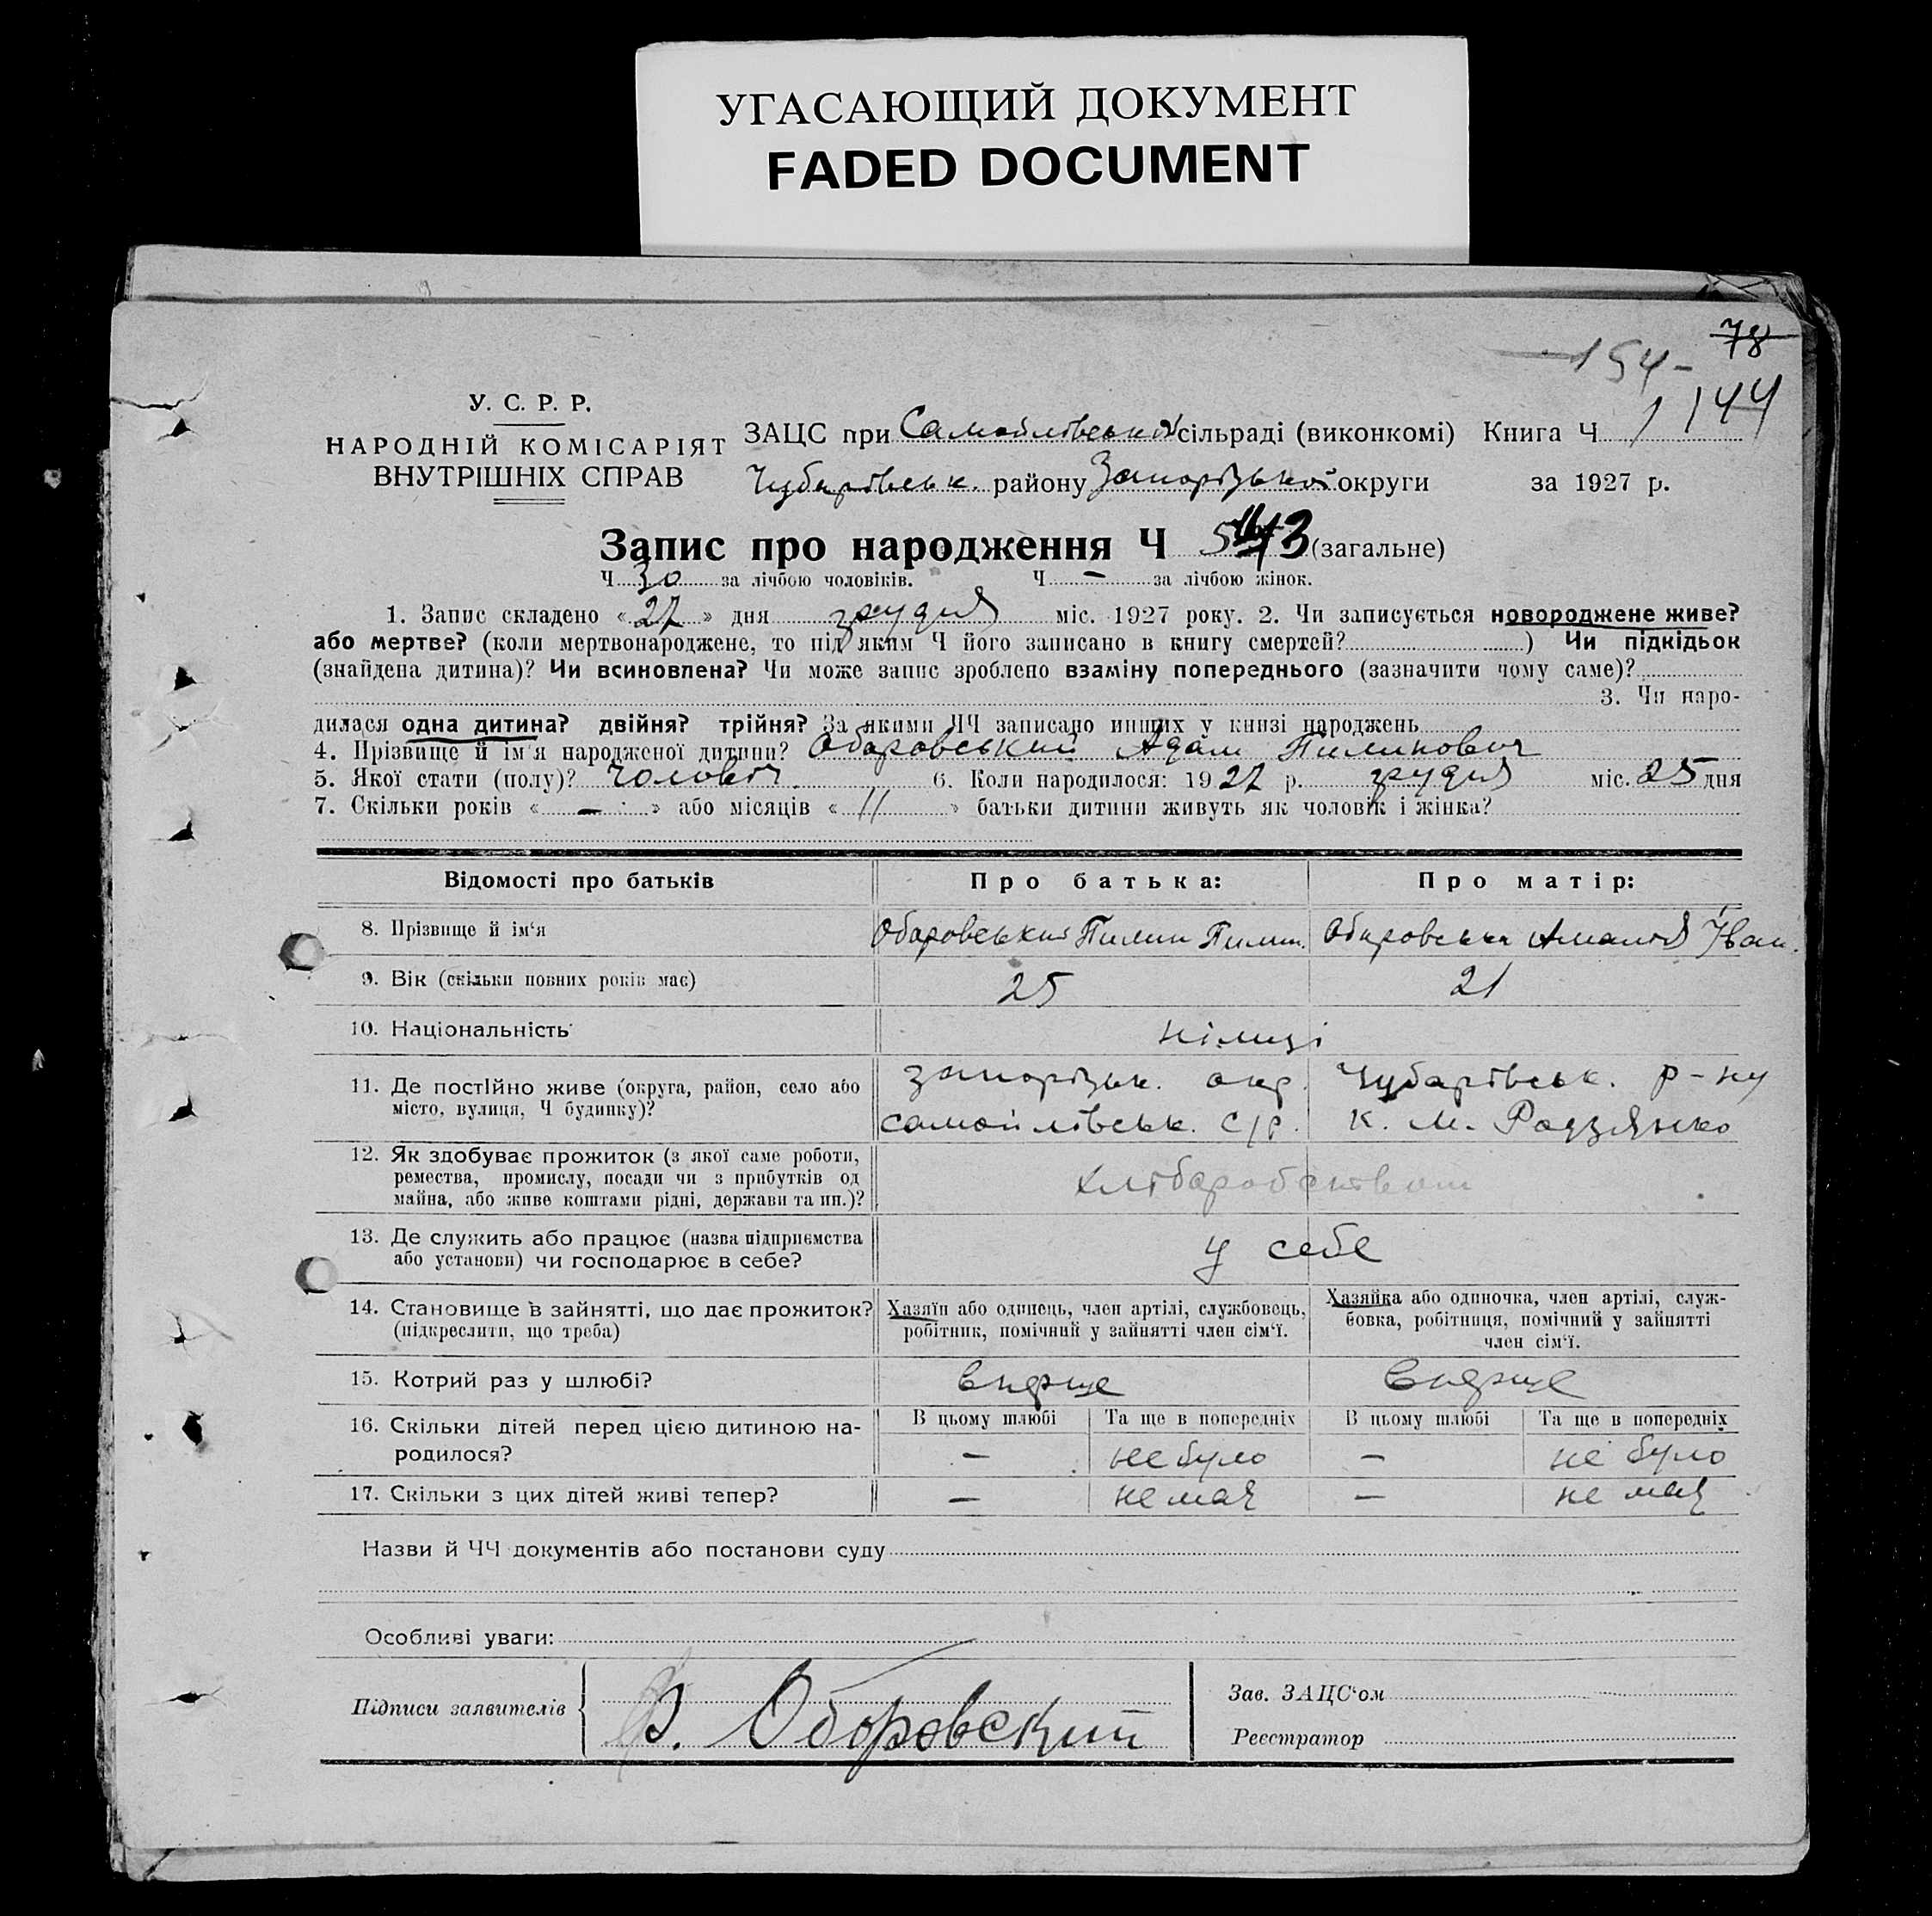 УГАСАЮЩИЙ ДОКУМЕНТ
FADED DOCUMENT
78
154-
144
У. С. Р. Р.
НАРОДНІЙ КОМІСАРІЯТ
ВНУТРІШНІХ СПРАВ
ЗАЦС при Самойлівській сільраді (виконкомі) Книга Ч 1
Чубарівськ. району Запорізької округи за 1927 р.
Запис про народження Ч 43 (загальне)
Ч 30 за лічбою чоловіків. Ч — за лічбою жінок.
1. Запис складено «27» дня грудня міс. 1927 року. 2. Чи записується новороджене живе?
або мертве? (коли мертвонароджене, то під яким Ч його записано в книгу смертей? ) Чи підкідьок
(знайдена дитина)? Чи всиновлена? Чи може запис зроблено взаміну попереднього (зазначити чому саме)?
3. Чи наро-
дилася одна дитина? двійня? трійня? За якими ЧЧ записано инших у книзі народжень
4. Прізвище й ім'я народженої дитини? Оборовський Адам Пилипович
5. Якої стати (полу)? чоловіч. 6. Коли народилося: 1927 р. грудня міс. 25 дня
7. Скільки років «—» або місяців «11» батьки дитини живуть як чоловік і жінка?
Відомості про батьків Про батька: Про матір:
8. Прізвище й ім'я Оборовський Пилип Пилип. Оборовська Амалія Іван.
9. Вік (скільки повних років має) 25 21
10. Національність німці
11. Де постійно живе (округа, район, село або Запорізьк. окр. Чубарівськ. р-ну
місто, вулиця, Ч будинку)? Самойлівськ. с/р. к. м. Родзянко
12. Як здобуває прожиток (з якої саме роботи,
ремества, промислу, посади чи з прибутків од хліборобством
майна, або живе коштами рідні, держави та ин.)?
13. Де служить або працює (назва підприємства у себе
або установи) чи господарює в себе?
14. Становище в зайнятті, що дає прожиток? Хазяїн або одинець, член артілі, службовець, Хазяйка або одиночка, член артілі, служ-
(підкреслити, що треба) робітник, помічний у зайнятті член сім'ї. бовка, робітниця, помічний у зайнятті
член сім'ї.
15. Котрий раз у шлюбі? вперше вперше
16. Скільки дітей перед цією дитиною на- В цьому шлюбі Та ще в попередніх В цьому шлюбі Та ще в попередніх
родилося? — не було — не було
17. Скільки з цих дітей живі тепер? — немає — не має
Назви й ЧЧ документів або постанови суду
Особливі уваги:
Підписи заявителів Ф. Оборовский Зав. ЗАЦС'ом
Реєстратор